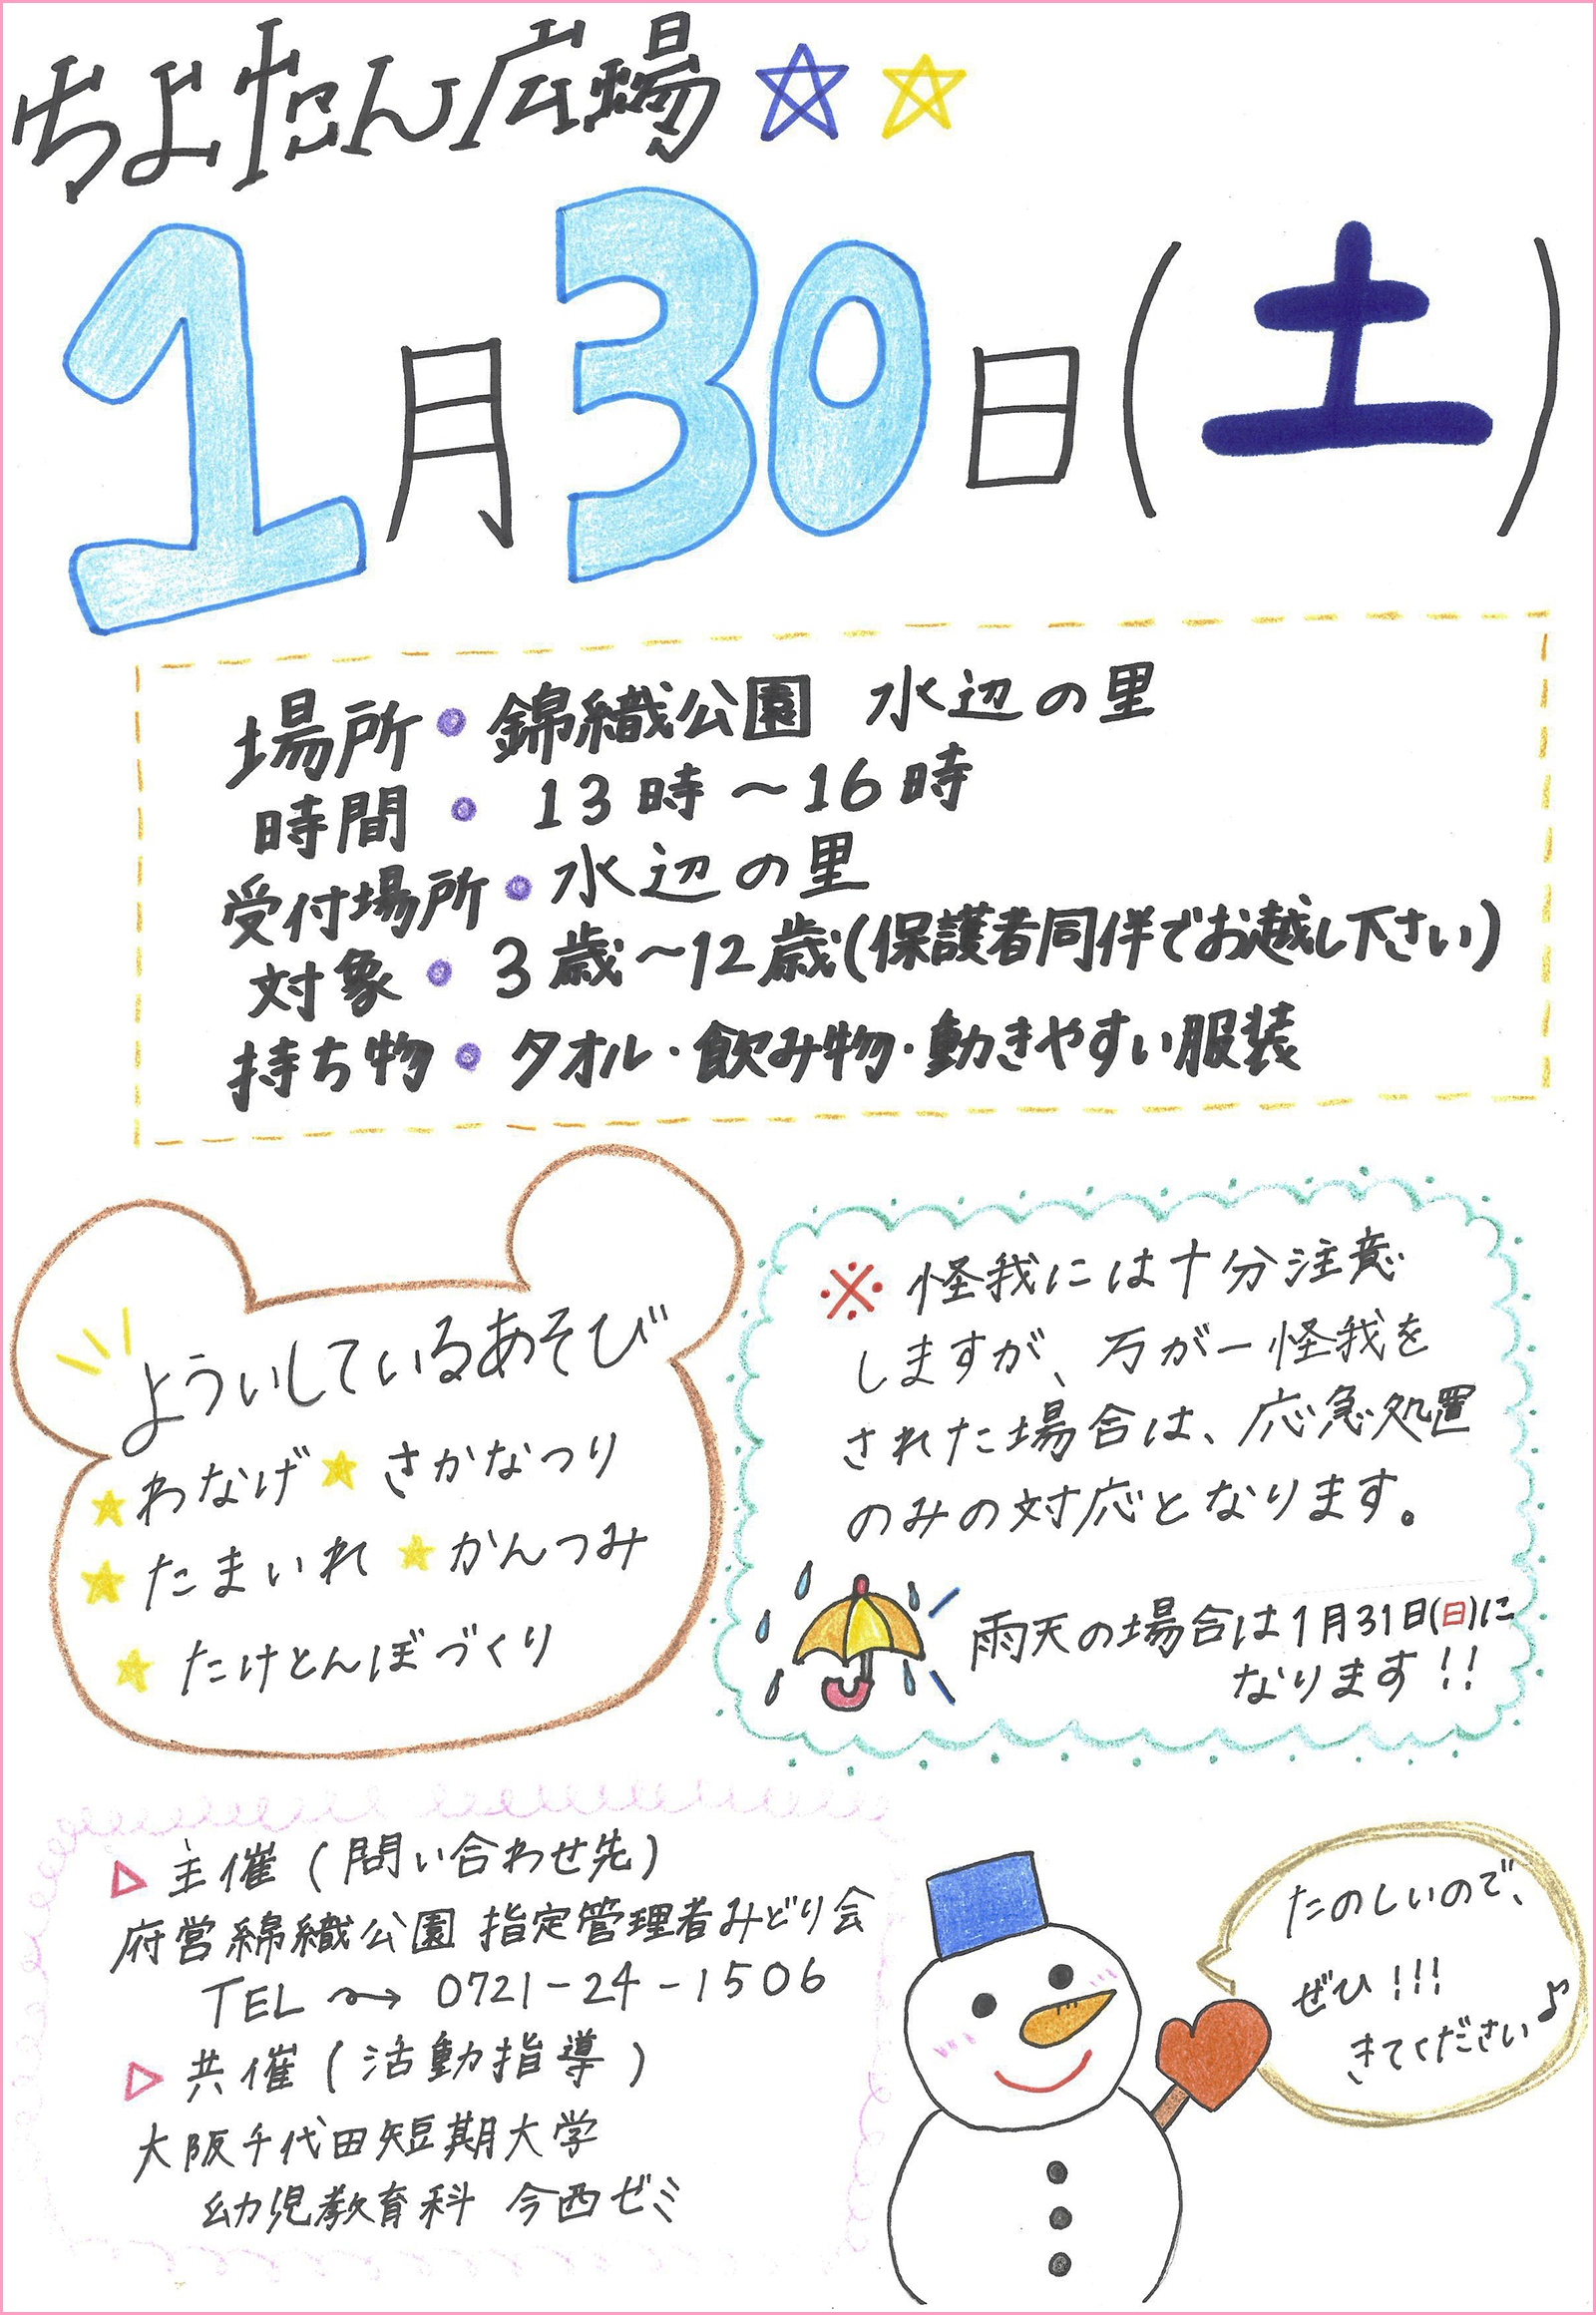 ちよたん広場
1月30日(土)
場所・錦織公園 水辺の里
時間・13時〜16時
受付場所・水辺の里
対象・3歳〜12歳(保護者同伴でお越し下さい)
持ち物・タオル・飲み物・動きやすい服装
よういしているあそび
★わなげ★さかなつり
★たまいれ★かんつみ
★たけとんぼづくり
※怪我には十分注意
しますが、万が一怪我を
された場合は、応急処置
のみの対応となります。
雨天の場合は1月31日(日)に
なります!!
▷主催(問い合わせ先)
府営綿織公園 指定管理者みどり会
TEL → 0721-24-1506
▷共催(活動指導)
大阪千代田短期大学
幼児教育科 今西ゼミ
たのしいので、
ぜひ!!!
きてください♪